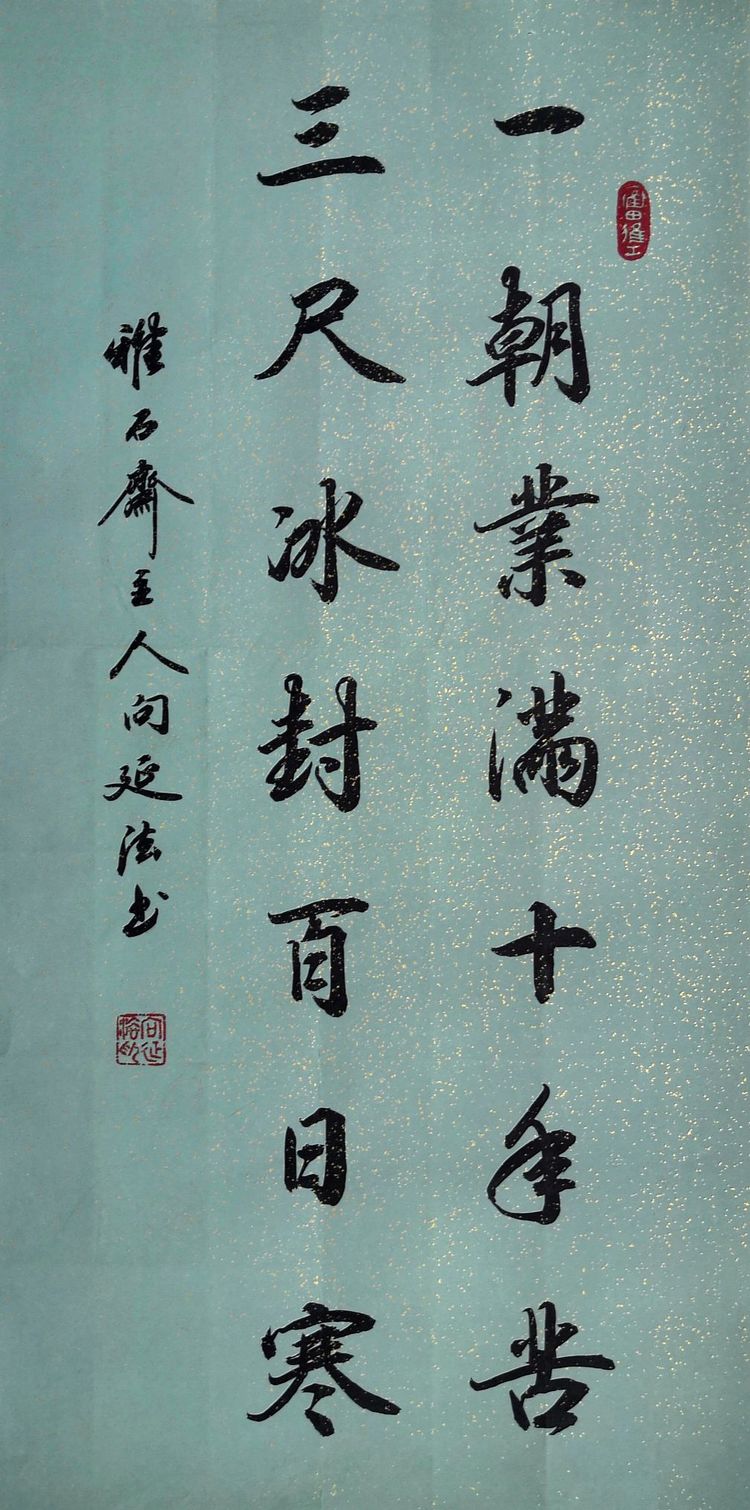 一朝業滿十年苦
三尺冰封百日寒
雅石齋主人向延法书